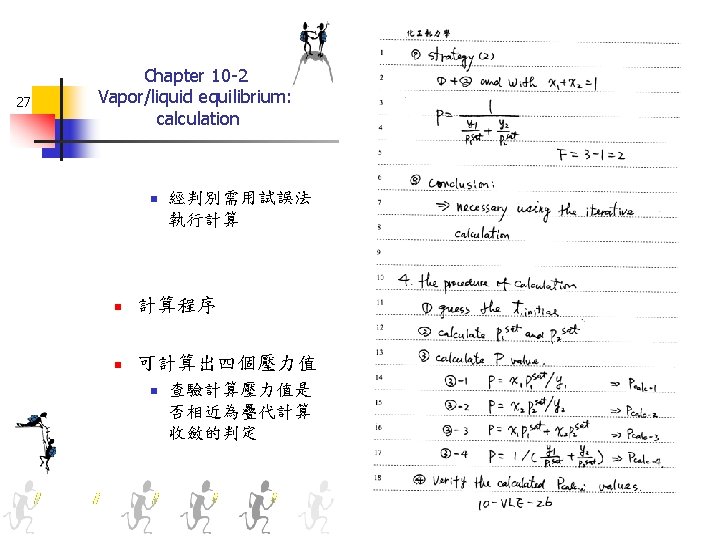 27
Chapter 10-2
Vapor/liquid equilibrium:
calculation
經判別需用試誤法
執行計算
計算程序
可計算出四個壓力值
查驗計算壓力值是
否相近為疊代計算
收斂的判定
化工熱力學
1 ⑦ strategy (2)
2 ① + ② and with x₁+x₂=1
3 P = 1
4 y₁/P₁sat + y₂/P₂sat
5 F = 3-1 = 2
6 ⑧ conclusion:
7 ⇒ necessary using the iterative
8 calculation
9
10 4. the procedure of calculation
11 ① guess the T initial
12 ② calculate P₁sat and P₂sat
13 ③ calculate P value.
14 ③-1 P = x₁P₁sat/y₁ ⇒ Pcalc-1
15 ③-2 P = x₂P₂sat/y₂ ⇒ Pcalc-2
16 ③-3 P = x₁P₁sat + x₂P₂sat ⇒ Pcalc-3
17 ③-4 P = 1/(y₁/P₁sat + y₂/P₂sat) ⇒ Pcalc-4
18 ④ Verify the calculated Pcalc-i values.
10-VLE-26